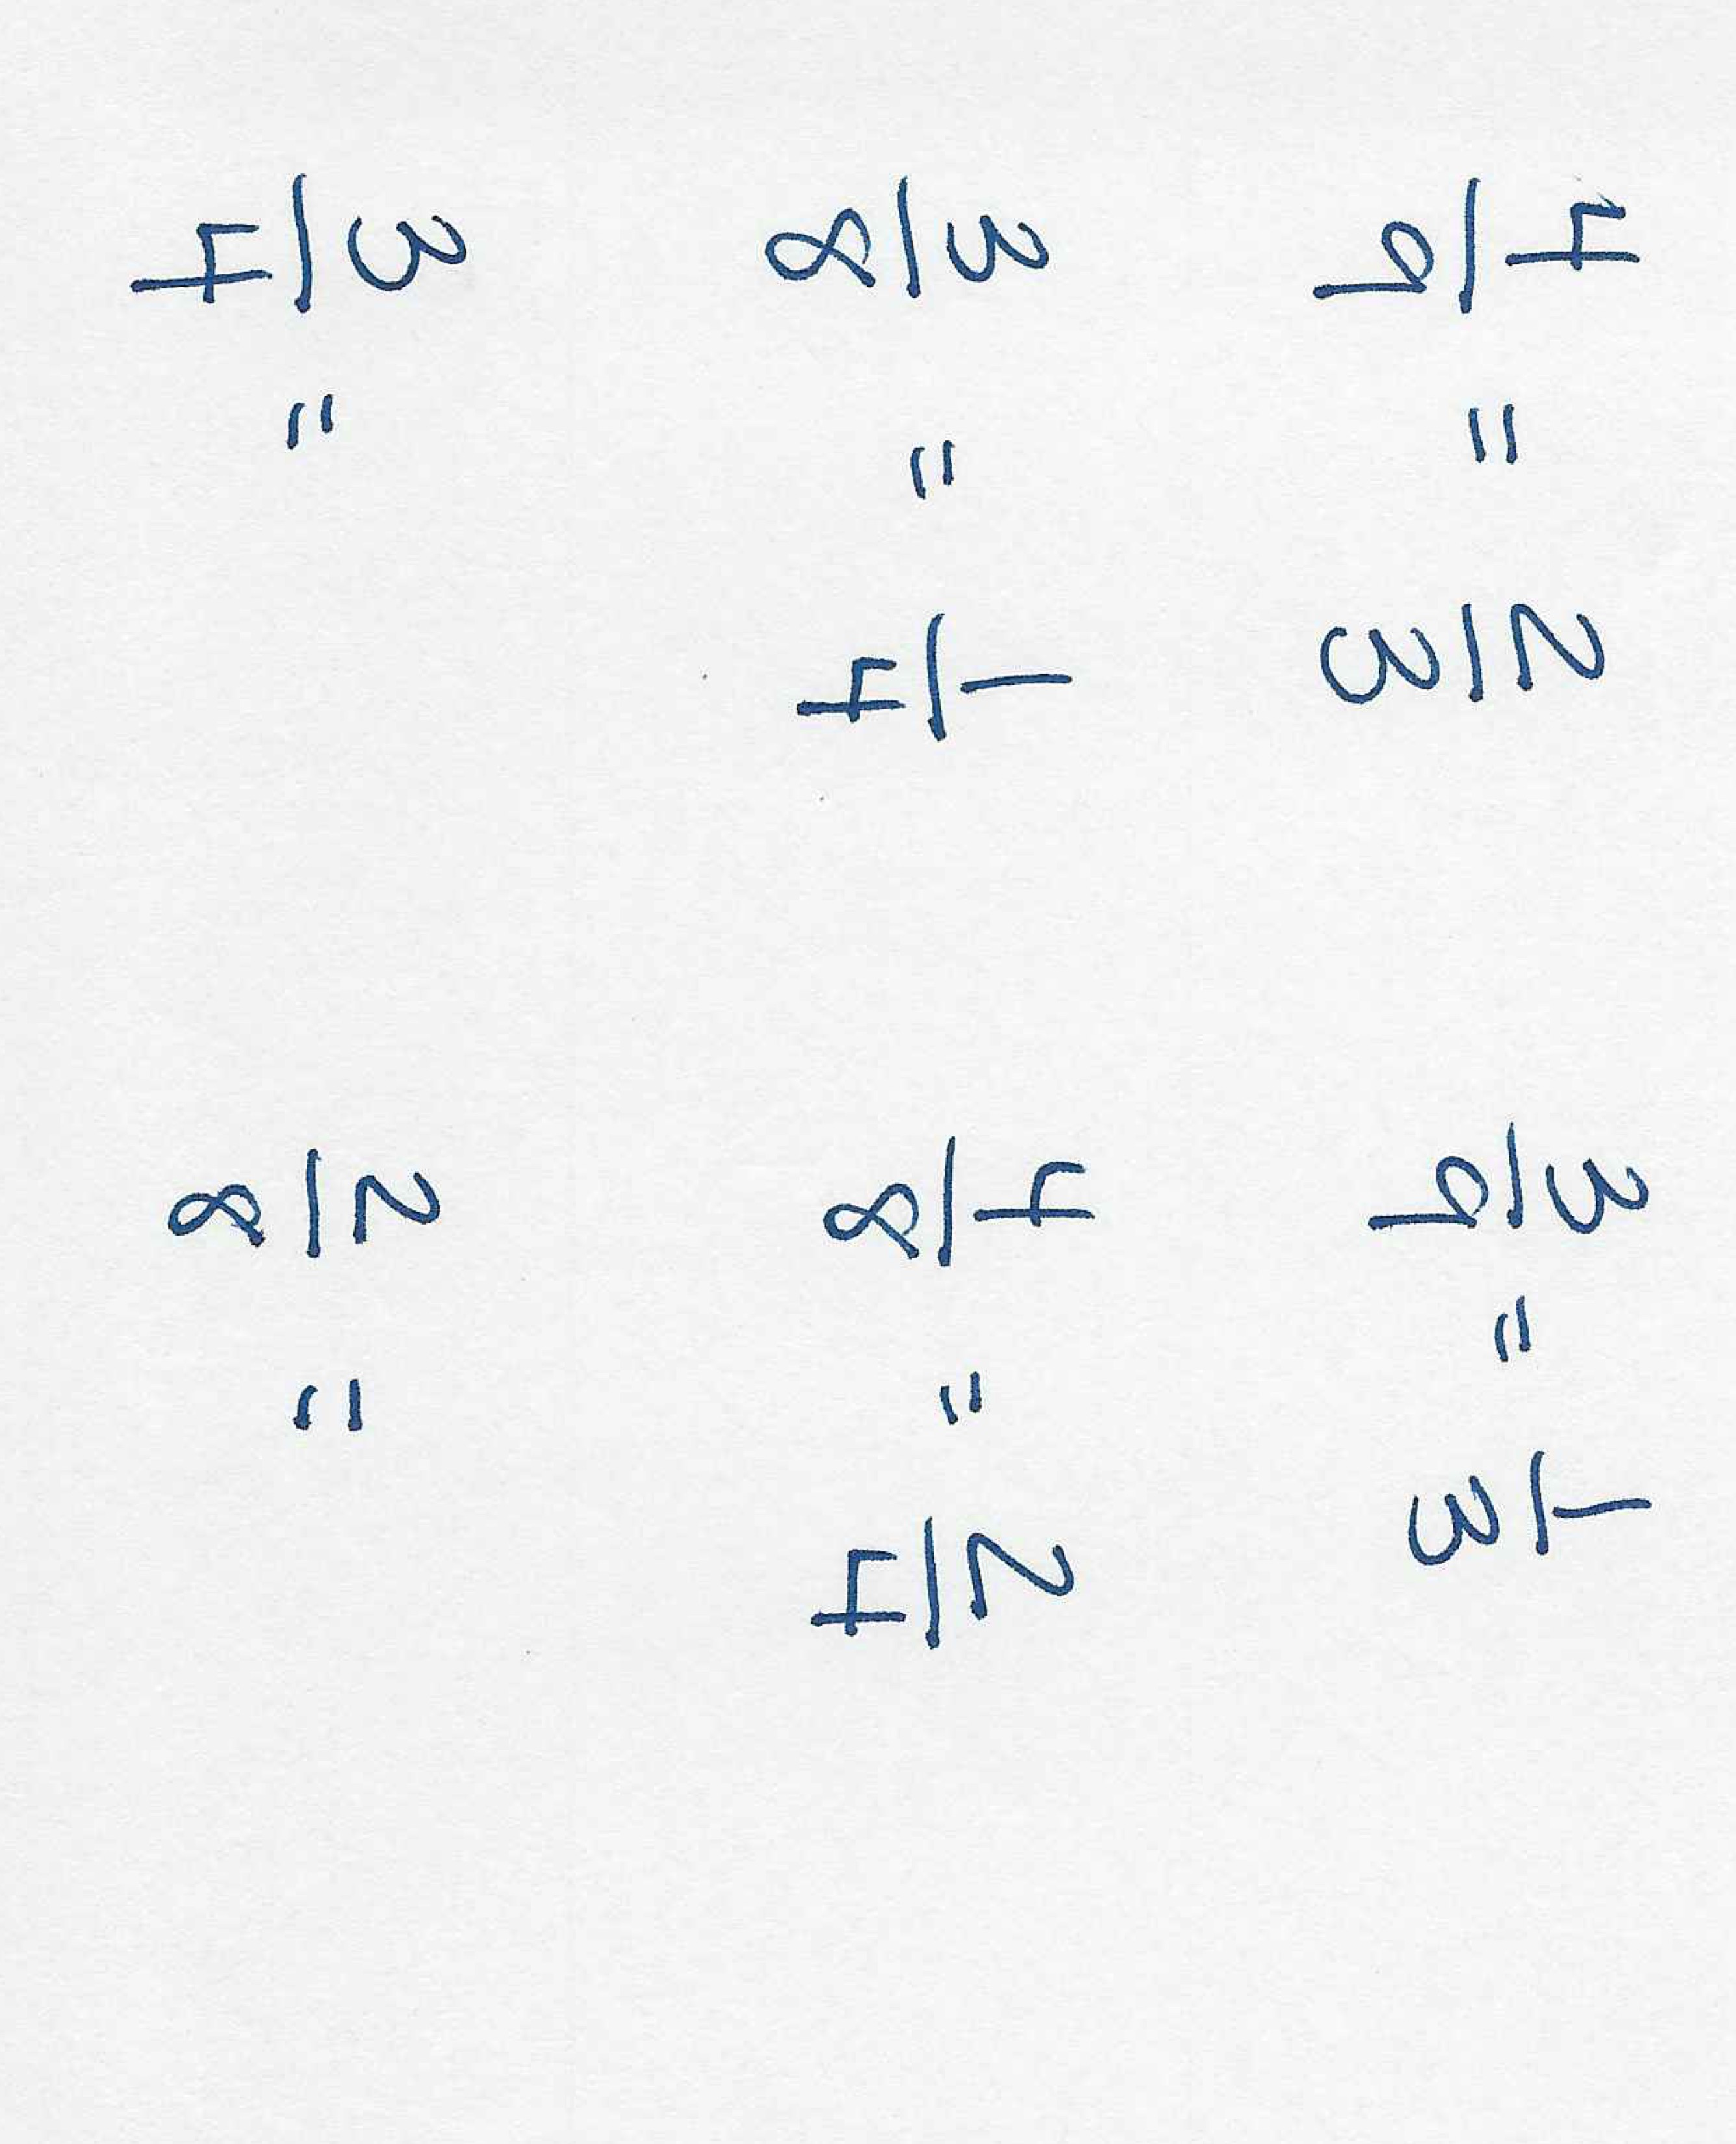 4/9 = 2/3 3/9 = 1/3
3/8 = 1/4 4/8 = 2/4
3/4 = 2/8 =